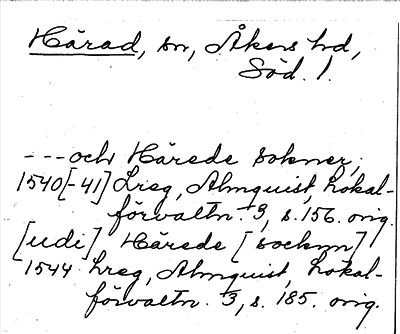 Härad, sn, Åkers hd,
Söd. l.
---och Härede sokner,
1540[-41] Lreg, Almquist, Lokal-
förvaltn. 3, s. 156. orig.
[udi] Härede [socknn]
1544 Lreg, Almquist, Lokal-
förvaltn. 3, s. 185. orig.